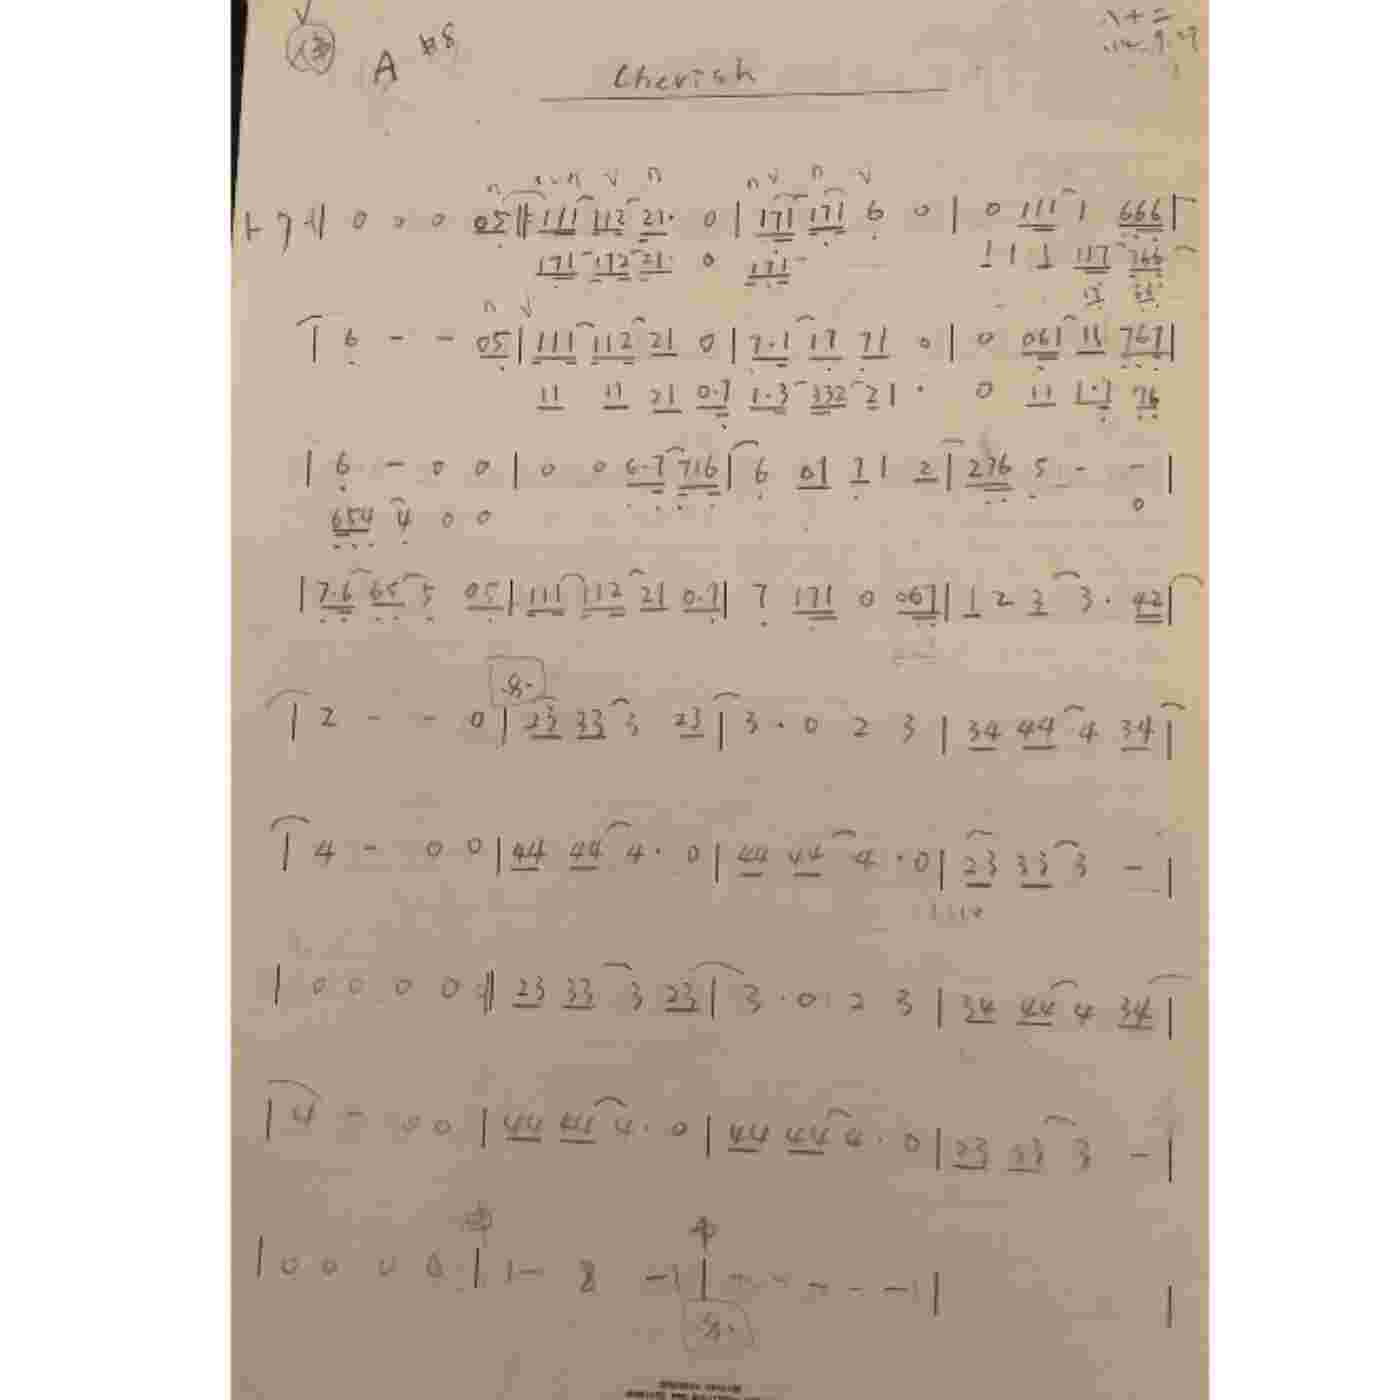 A #8
Cherish
0 0 0 05 ‖ 111 112 21· 0 | 171 171 6 0 | 0 111 1 666 |
171 172 21· 0 171 1 1 1 117 766
| 6 - - 05 | 111 112 21 0 | 7·1 17 71 0 | 0 061 11 767 |
11 11 21 0·7 1·3 332 21 · 0 11 1·7 76
| 6 - 0 0 | 0 0 6·7 716 | 6 01 7 1 2 | 276 5 - - |
654 4 0 0 0
| 7·6 65 5 05 | 111 112 21 0·7 | 7 171 0 067 | 1 2 3 3· 42 |
| 2 - - 0 | 23 33 3 23 | 3 · 0 2 3 | 34 44 4 34 |
| 4 - 0 0 | 44 44 4· 0 | 44 44 4 · 0 | 23 33 3 - |
| 0 0 0 0 ‖ 23 33 3 23 | 3 · 0 2 3 | 34 44 4 34 |
| 4 - 0 0 | 44 44 4· 0 | 44 44 4· 0 | 23 33 3 - |
| 0 0 0 0 | 1 -